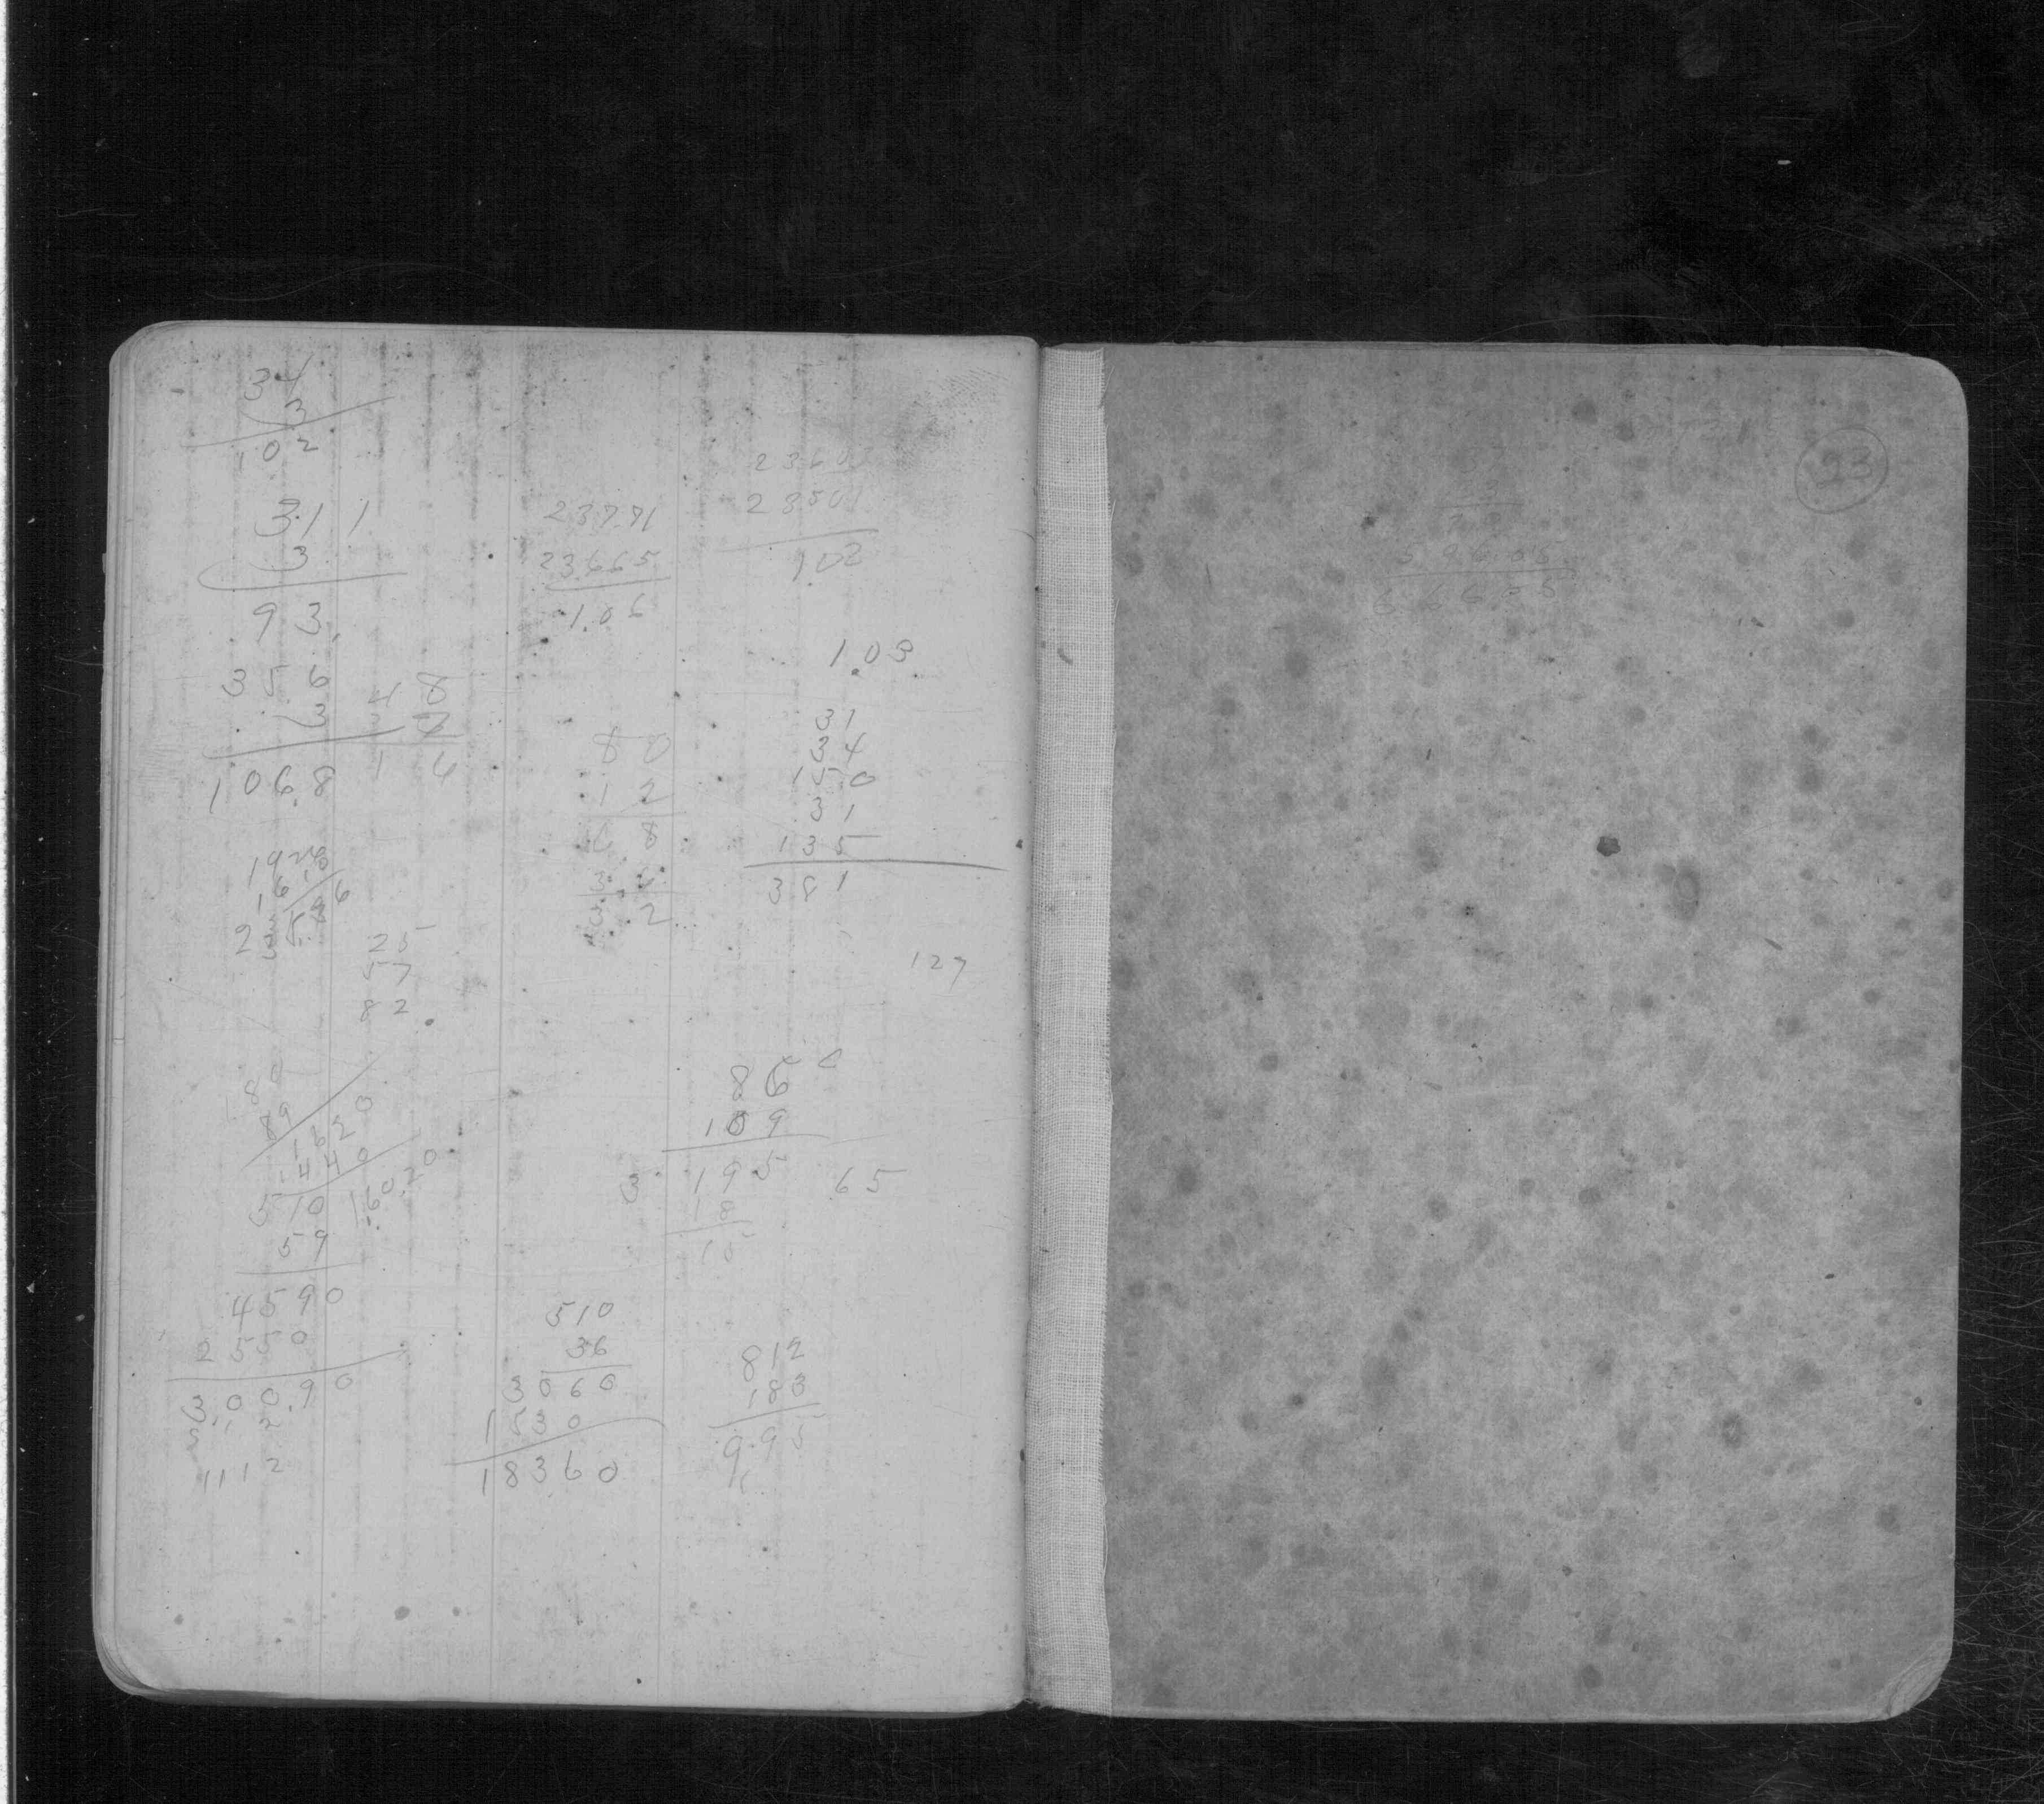 34
3
102
311
3
93
356
3
1068
48
3
1 6
1928
25
57
82
89
1620
1440
510
59
4590
2550
30090
1112
23771
23665
1.06
80
12
68
36
32
510
36
3060
1530
18360
23603
23501
102
1.03
31
34
150
31
135
381
127
86
109
3 195 65
18
15
812
183
995
23